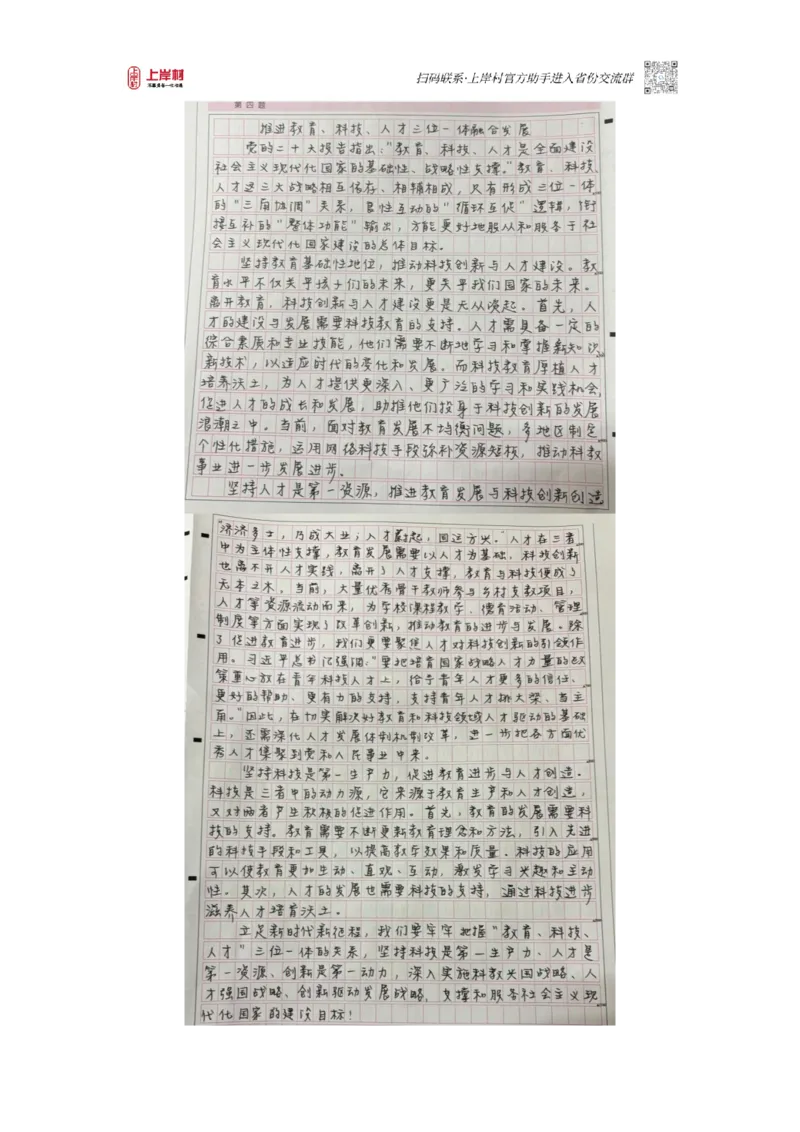 上岸村
扫码联系·上岸村官方助手进入省份交流群
第四题
推进教育、科技、人才三位一体融合发展
党的二十大报告指出:"教育、科技、人才是全面建设
社会主义现代化国家的基础性、战略性支撑。"教育、科技、
人才这三大战略相互依存、相辅相成,只有形成三位一体
的"三角协调"关系,良性互动的"循环互促"逻辑,衔
接互补的"整体功能"输出,方能更好地服从和服务于社
会主义现代化国家建设的总体目标。
坚持教育基础性地位,推动科技创新与人才建设。教
育水平不仅关乎孩子们的未来,更关乎我们国家的未来。
离开教育,科技创新与人才建设更是无从谈起。首先,人
才的建设与发展需要科技教育的支持。人才需具备一定的
综合素质和专业技能,他们需要不断地学习和掌握新知识
新技术,以适应时代的变化和发展。而科技教育厚植人才
培养沃土,为人才提供更深入、更广泛的学习和实践机会,
促进人才的成长和发展,助推他们投身于科技创新的发展
浪潮之中。当前,面对教育发展不均衡问题,多地区制定
个性化措施,运用网络科技手段弥补资源短板,推动科教
事业进一步发展进步。
坚持人才是第一资源,推进教育发展与科技创新创造
"济济多士,乃成大业;人才蔚起,国运方兴。"人才在三者
中为主体性支撑,教育发展需要以人才为基础,科技创新
也离不开人才实践,离开了人才支撑,教育与科技便成了
无本之木。当前,大量优秀骨干教师参与乡村支教项目,
人才等资源流动而来,为学校课程教学、德育活动、管理
制度等方面实现了改革创新,推动教育的进步与发展。除
了促进教育进步,我们更要聚焦人才对科技创新的引领作
用。习近平总书记强调:"要把培育国家战略人才力量的政
策重心放在青年科技人才上,给予青年人才更多的信任、
更好的帮助、更有力的支持,支持青年人才挑大梁、当主
角。"因此,在切实解决好教育和科技领域人才驱动的基础
上,还需深化人才发展体制机制改革,进一步把各方面优
秀人才集聚到党和人民事业中来。
坚持科技是第一生产力,促进教育进步与人才创造。
科技是三者中的动力源,它来源于教育生产和人才创造,
又对两者产生积极的促进作用。首先,教育的发展需要科
技的支持。教育需要不断更新教育理念和方法,引入先进
的科技手段和工具,以提高教学效果和质量。科技的应用
可以使教育更加生动、直观、互动,激发学习兴趣和主动
性。其次,人才的发展也需要科技的支持,通过科技进步
滋养人才培育沃土。
立足新时代新征程,我们要牢牢把握"教育、科技、
人才"三位一体的关系,坚持科技是第一生产力、人才是
第一资源、创新是第一动力,深入实施科教兴国战略、人
才强国战略、创新驱动发展战略,支撑和服务社会主义现
代化国家的建设目标!